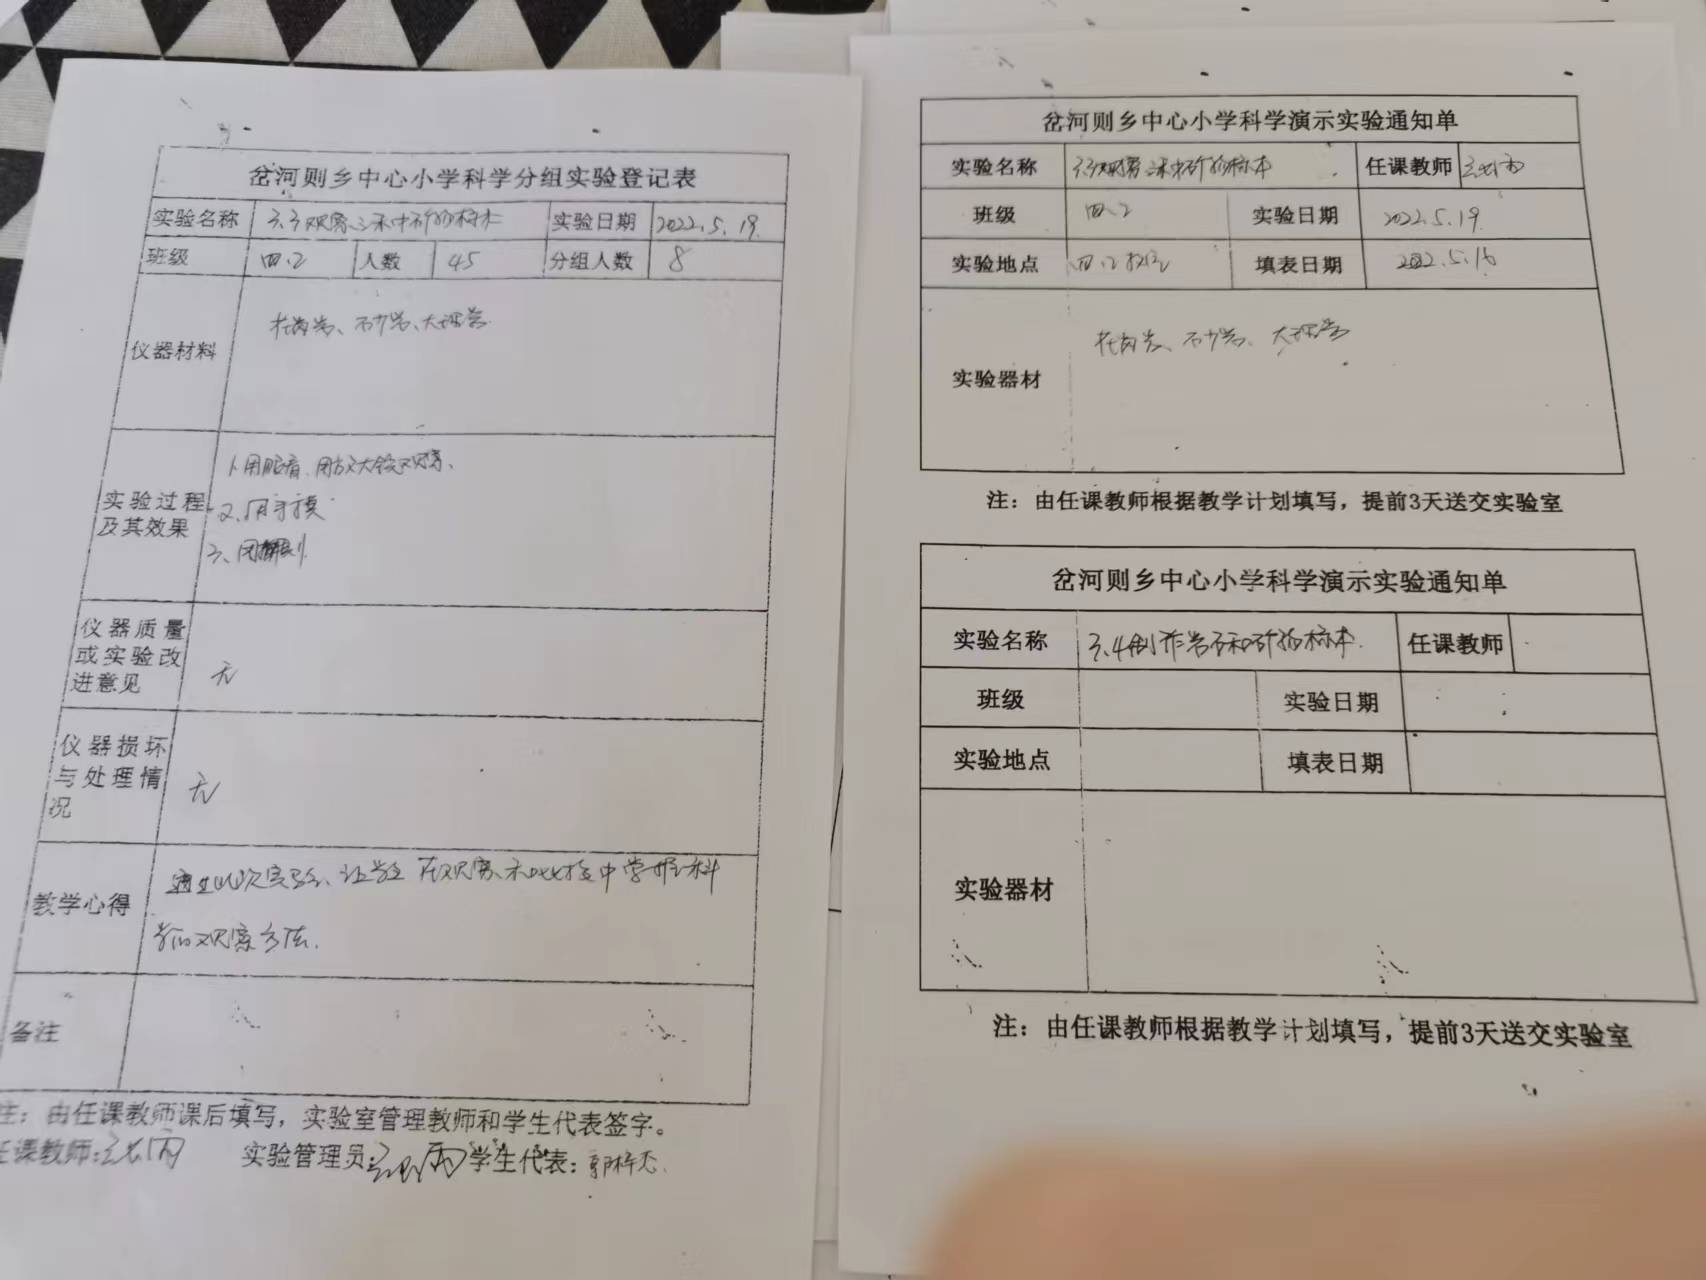 岔河则乡中心小学科学分组实验登记表
实验名称 3.3观察三种矿物标本 实验日期 2022.5.19.
班级 四.2 人数 45 分组人数 8
仪器材料 花岗岩、石灰岩、大理岩
实验过程及其效果
1.用眼看、用放大镜观察、
2.用手摸
3、用
仪器质量或实验改进意见 无
仪器损坏与处理情况 无
教学心得 通过此次实验、让学生在观察和比较中掌握科
学的观察方法.
备注
注：由任课教师课后填写，实验室管理教师和学生代表签字。
任课教师: 实验管理员: 学生代表:
岔河则乡中心小学科学演示实验通知单
实验名称 3.3观察三种矿物标本 任课教师
班级 四.2 实验日期 2022.5.19
实验地点 四.2教室 填表日期 2022.5.16
实验器材 花岗岩、石灰岩、大理岩
注：由任课教师根据教学计划填写，提前3天送交实验室
岔河则乡中心小学科学演示实验通知单
实验名称 3.4制作岩石和矿物标本. 任课教师
班级 实验日期
实验地点 填表日期
实验器材
注：由任课教师根据教学计划填写，提前3天送交实验室